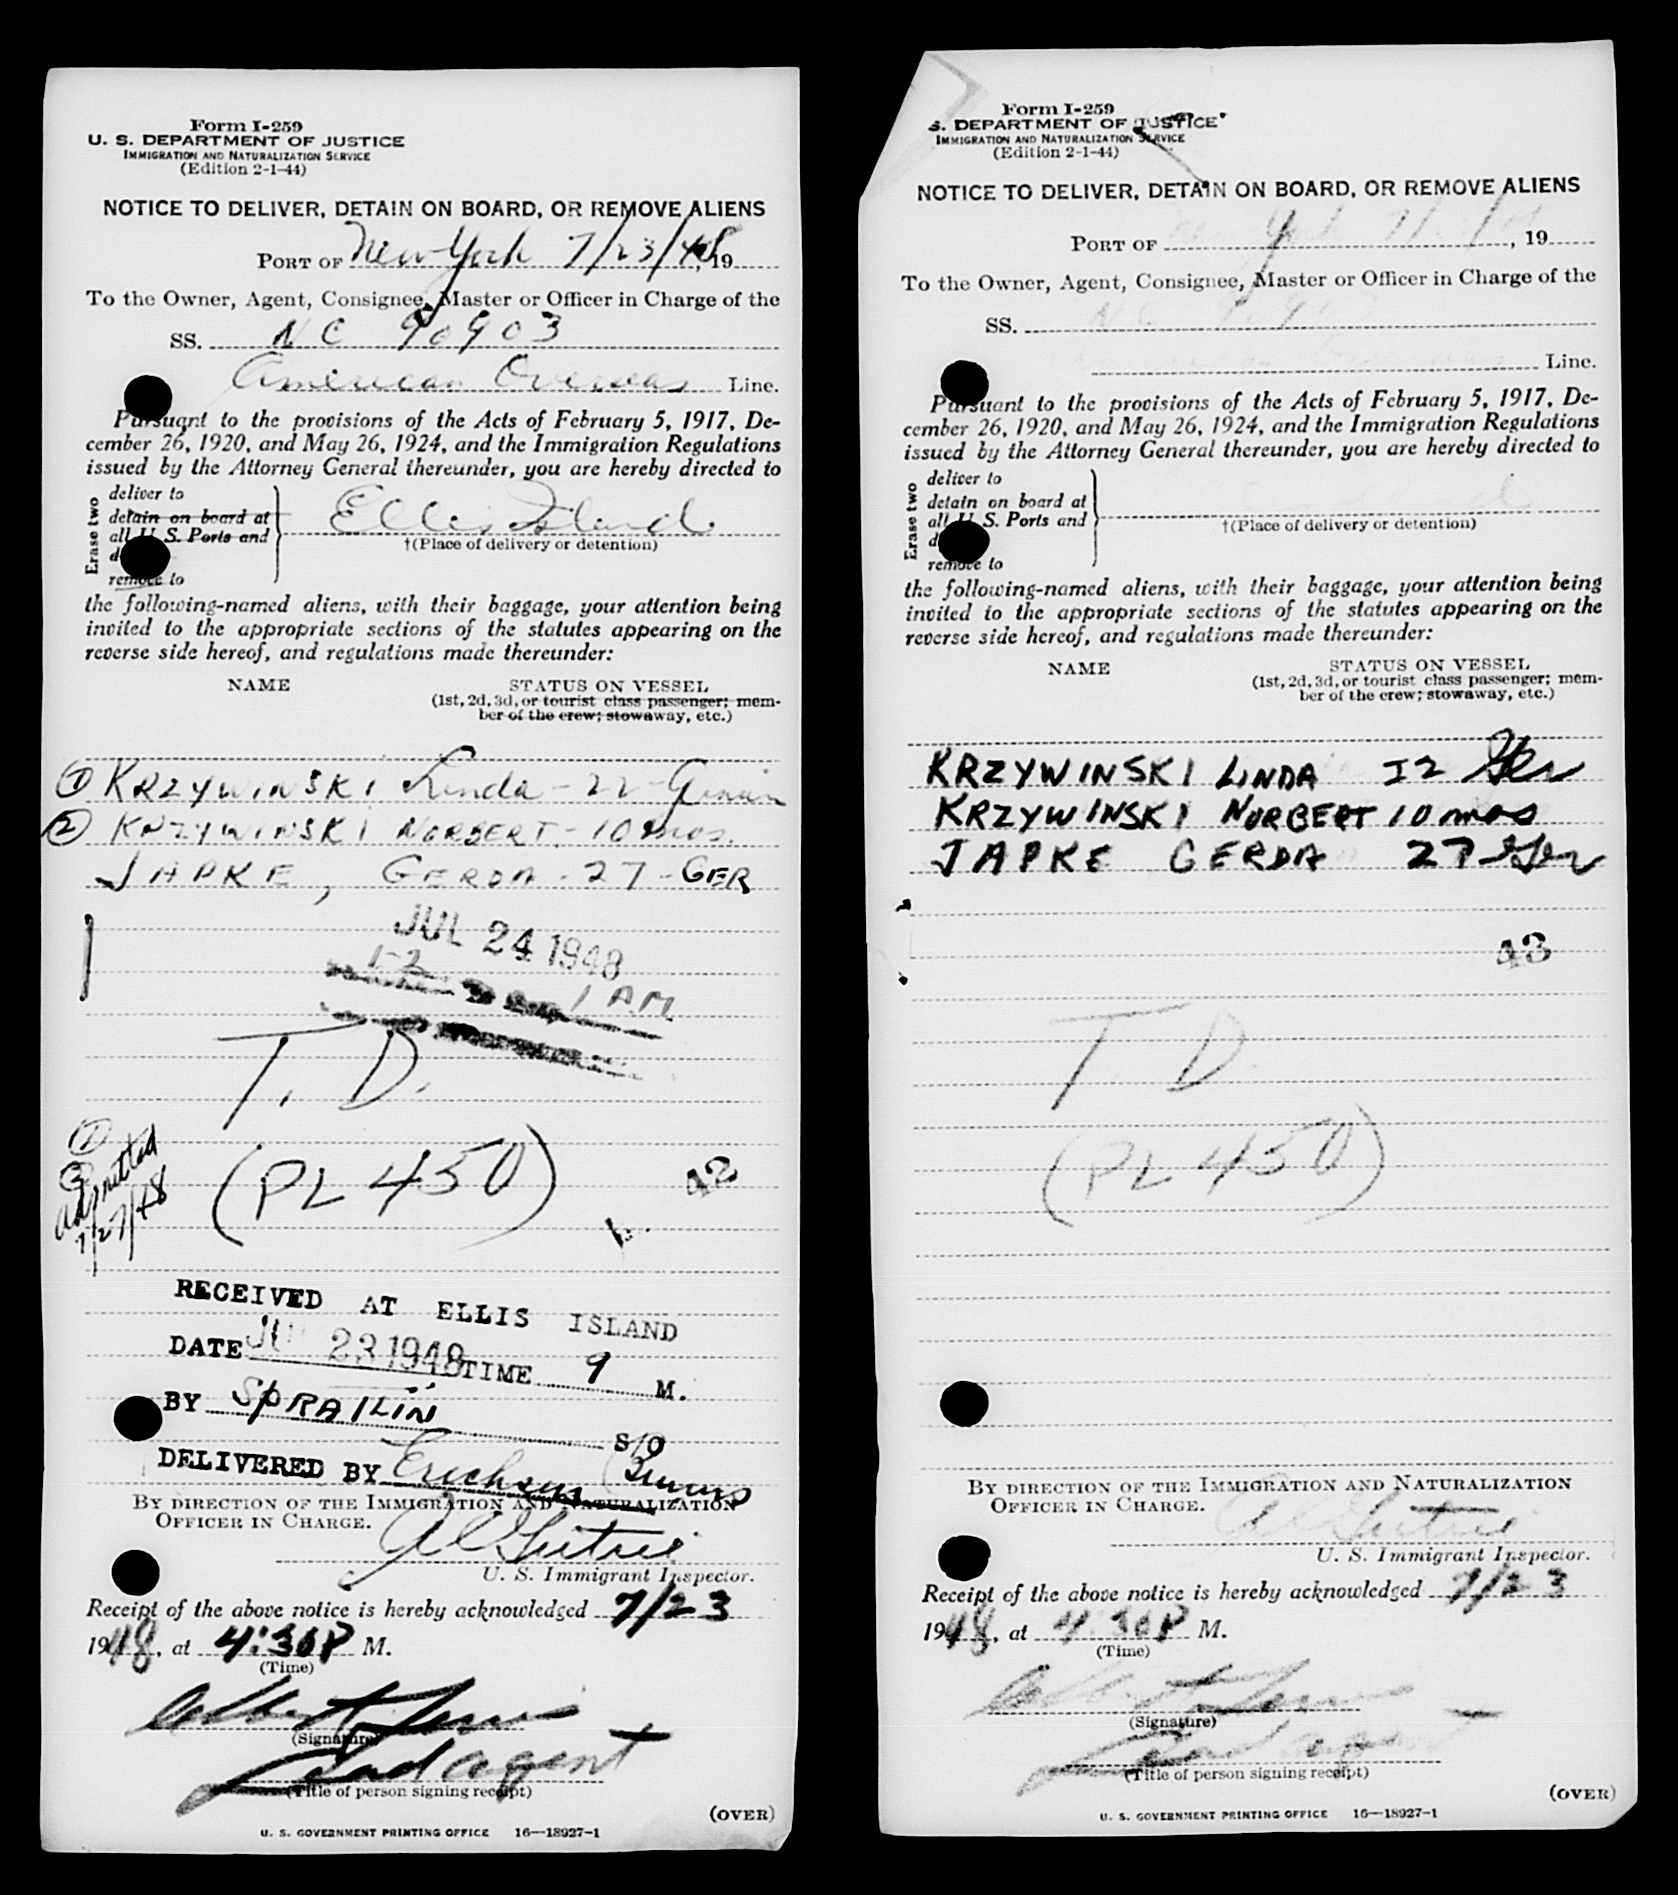 Form I-259
U. S. DEPARTMENT OF JUSTICE
IMMIGRATION AND NATURALIZATION SERVICE
(Edition 2-1-44)
NOTICE TO DELIVER, DETAIN ON BOARD, OR REMOVE ALIENS
PORT OF New York 7/23/48, 19
To the Owner, Agent, Consignee, Master or Officer in Charge of the
SS. NC 90903
American Overseas Line.
Pursuant to the provisions of the Acts of February 5, 1917, De-
cember 26, 1920, and May 26, 1924, and the Immigration Regulations
issued by the Attorney General thereunder, you are hereby directed to
Erase two
deliver to
detain on board at
all U. S. Ports and
remove to
Ellis Island
†(Place of delivery or detention)
the following-named aliens, with their baggage, your attention being
invited to the appropriate sections of the statutes appearing on the
reverse side hereof, and regulations made thereunder:
NAME STATUS ON VESSEL
(1st, 2d, 3d, or tourist class passenger; mem-
ber of the crew; stowaway, etc.)
① KRZYWINSKI Linda - 22 - German
② KRZYWINSKI NORBERT - 10 mos.
JAPKE, GERDA - 27 - GER
JUL 24 1948
1-2
1 AM
T. D.
(PL 450)
42
①
②
admitted
7/27/48
RECEIVED AT ELLIS ISLAND
DATE JUL 23 1948 TIME 9 M.
BY SPRATLIN
S/O
DELIVERED BY Erichsen
BY DIRECTION OF THE IMMIGRATION AND NATURALIZATION
OFFICER IN CHARGE.
U. S. Immigrant Inspector.
Receipt of the above notice is hereby acknowledged 7/23
1948, at 4:30P M.
(Time)
Albert
(Signature)
Lead agent
(Title of person signing receipt)
(OVER)
U. S. GOVERNMENT PRINTING OFFICE 16—18927-1
Form I-259
S. DEPARTMENT OF JUSTICE
IMMIGRATION AND NATURALIZATION SERVICE
(Edition 2-1-44)
NOTICE TO DELIVER, DETAIN ON BOARD, OR REMOVE ALIENS
PORT OF New York 7/, 19
To the Owner, Agent, Consignee, Master or Officer in Charge of the
SS. NC
Line.
Pursuant to the provisions of the Acts of February 5, 1917, De-
cember 26, 1920, and May 26, 1924, and the Immigration Regulations
issued by the Attorney General thereunder, you are hereby directed to
Erase two
deliver to
detain on board at
all U. S. Ports and
remove to
†(Place of delivery or detention)
the following-named aliens, with their baggage, your attention being
invited to the appropriate sections of the statutes appearing on the
reverse side hereof, and regulations made thereunder:
NAME STATUS ON VESSEL
(1st, 2d, 3d, or tourist class passenger; mem-
ber of the crew; stowaway, etc.)
KRZYWINSKI LINDA 22 Ger
KRZYWINSKI NORBERT 10 mos
JAPKE GERDA 27 Ger
43
T. D.
(PL 450)
BY DIRECTION OF THE IMMIGRATION AND NATURALIZATION
OFFICER IN CHARGE.
U. S. Immigrant Inspector.
Receipt of the above notice is hereby acknowledged 7/23
1948, at 4:30P M.
(Time)
Albert
(Signature)
Lead agent
(Title of person signing receipt)
(OVER)
U. S. GOVERNMENT PRINTING OFFICE 16—18927-1